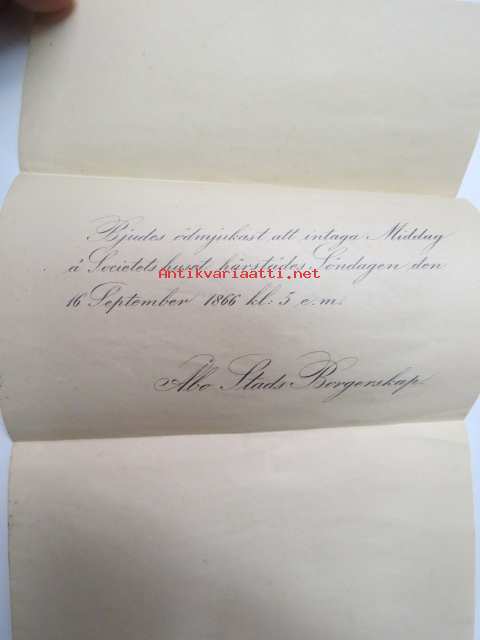 Bjudes ödmjukast att intaga Middag
å Societetshuset härstädes Söndagen den
Antikvariaatti.net
16 September 1866 kl: 5 e.m.
Åbo Stads Borgerskap.